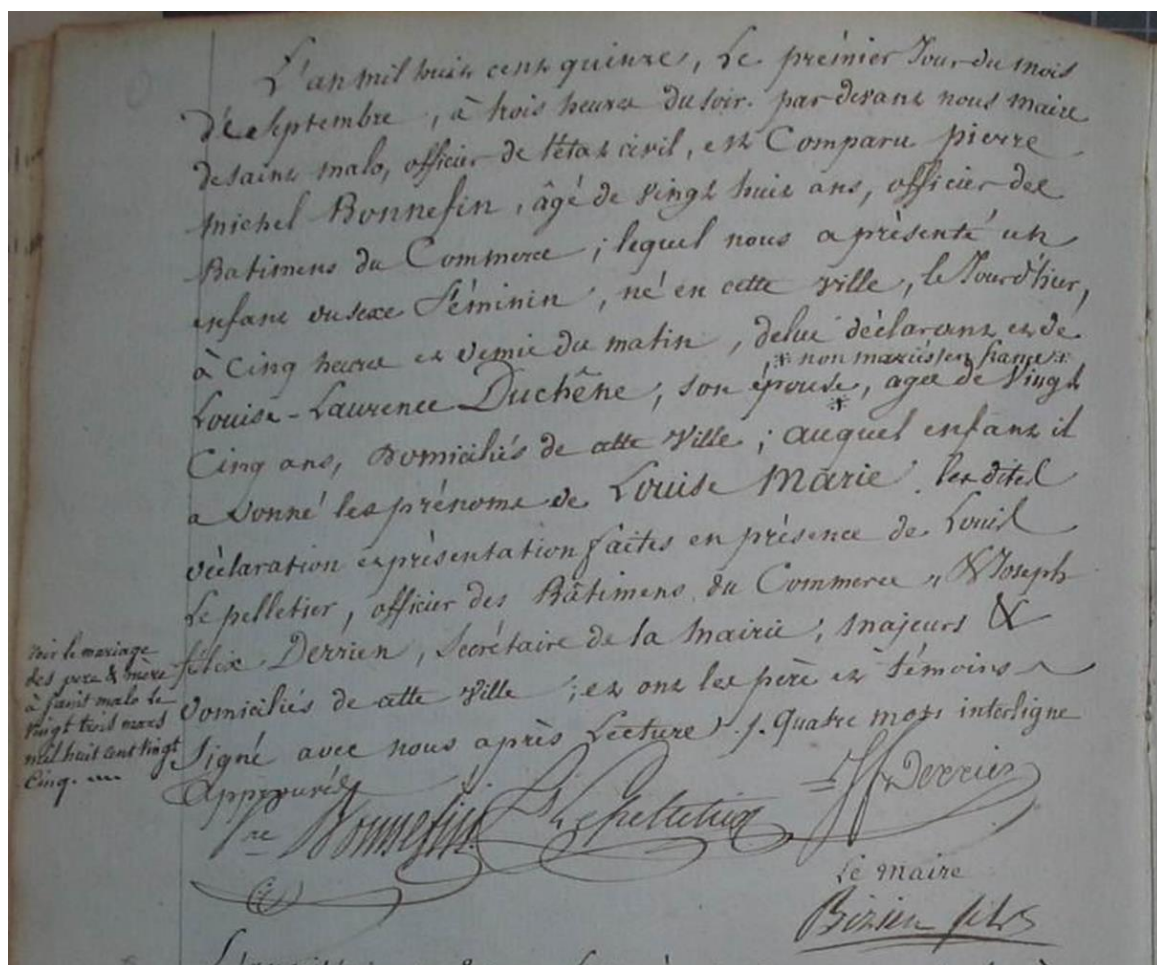 L'an mil huit cent quinze, le premier Jour du mois
de Septembre, à trois heures du soir. par devant nous maire
de saint malo, officier de l'état civil, est Comparu pierre
michel Bonnefin, âgé de vingt huit ans, officier des
Batimens du Commerce ; lequel nous a présenté un
enfant du sexe féminin, né en cette ville, le Jour d'hier,
à Cinq heures et demie du matin, de lui déclarant et de
* non mariés en france *
Louise-Laurence Duchêne, son épouse, * agée de vingt
Cinq ans, Domiciliés de cette ville ; auquel enfant il
a donné les prénoms de Louise Marie. les dites
déclaration et présentation faites en présence de Louis
Le pelletier, officier des Bâtimens du Commerce, & Joseph
félix Derrien, Secrétaire de la Mairie, majeurs &
Domiciliés de cette ville ; et ont les père et témoins
signé avec nous après Lecture ./. Quatre mots interligne
Approuvés
Voir le mariage
des pere & mère
à saint malo le
vingt trois mars
mil huit cent vingt
Cinq.
Pre Bonnefin Ls Le Pelletier JF Derrien
Le Maire
Bizien fils